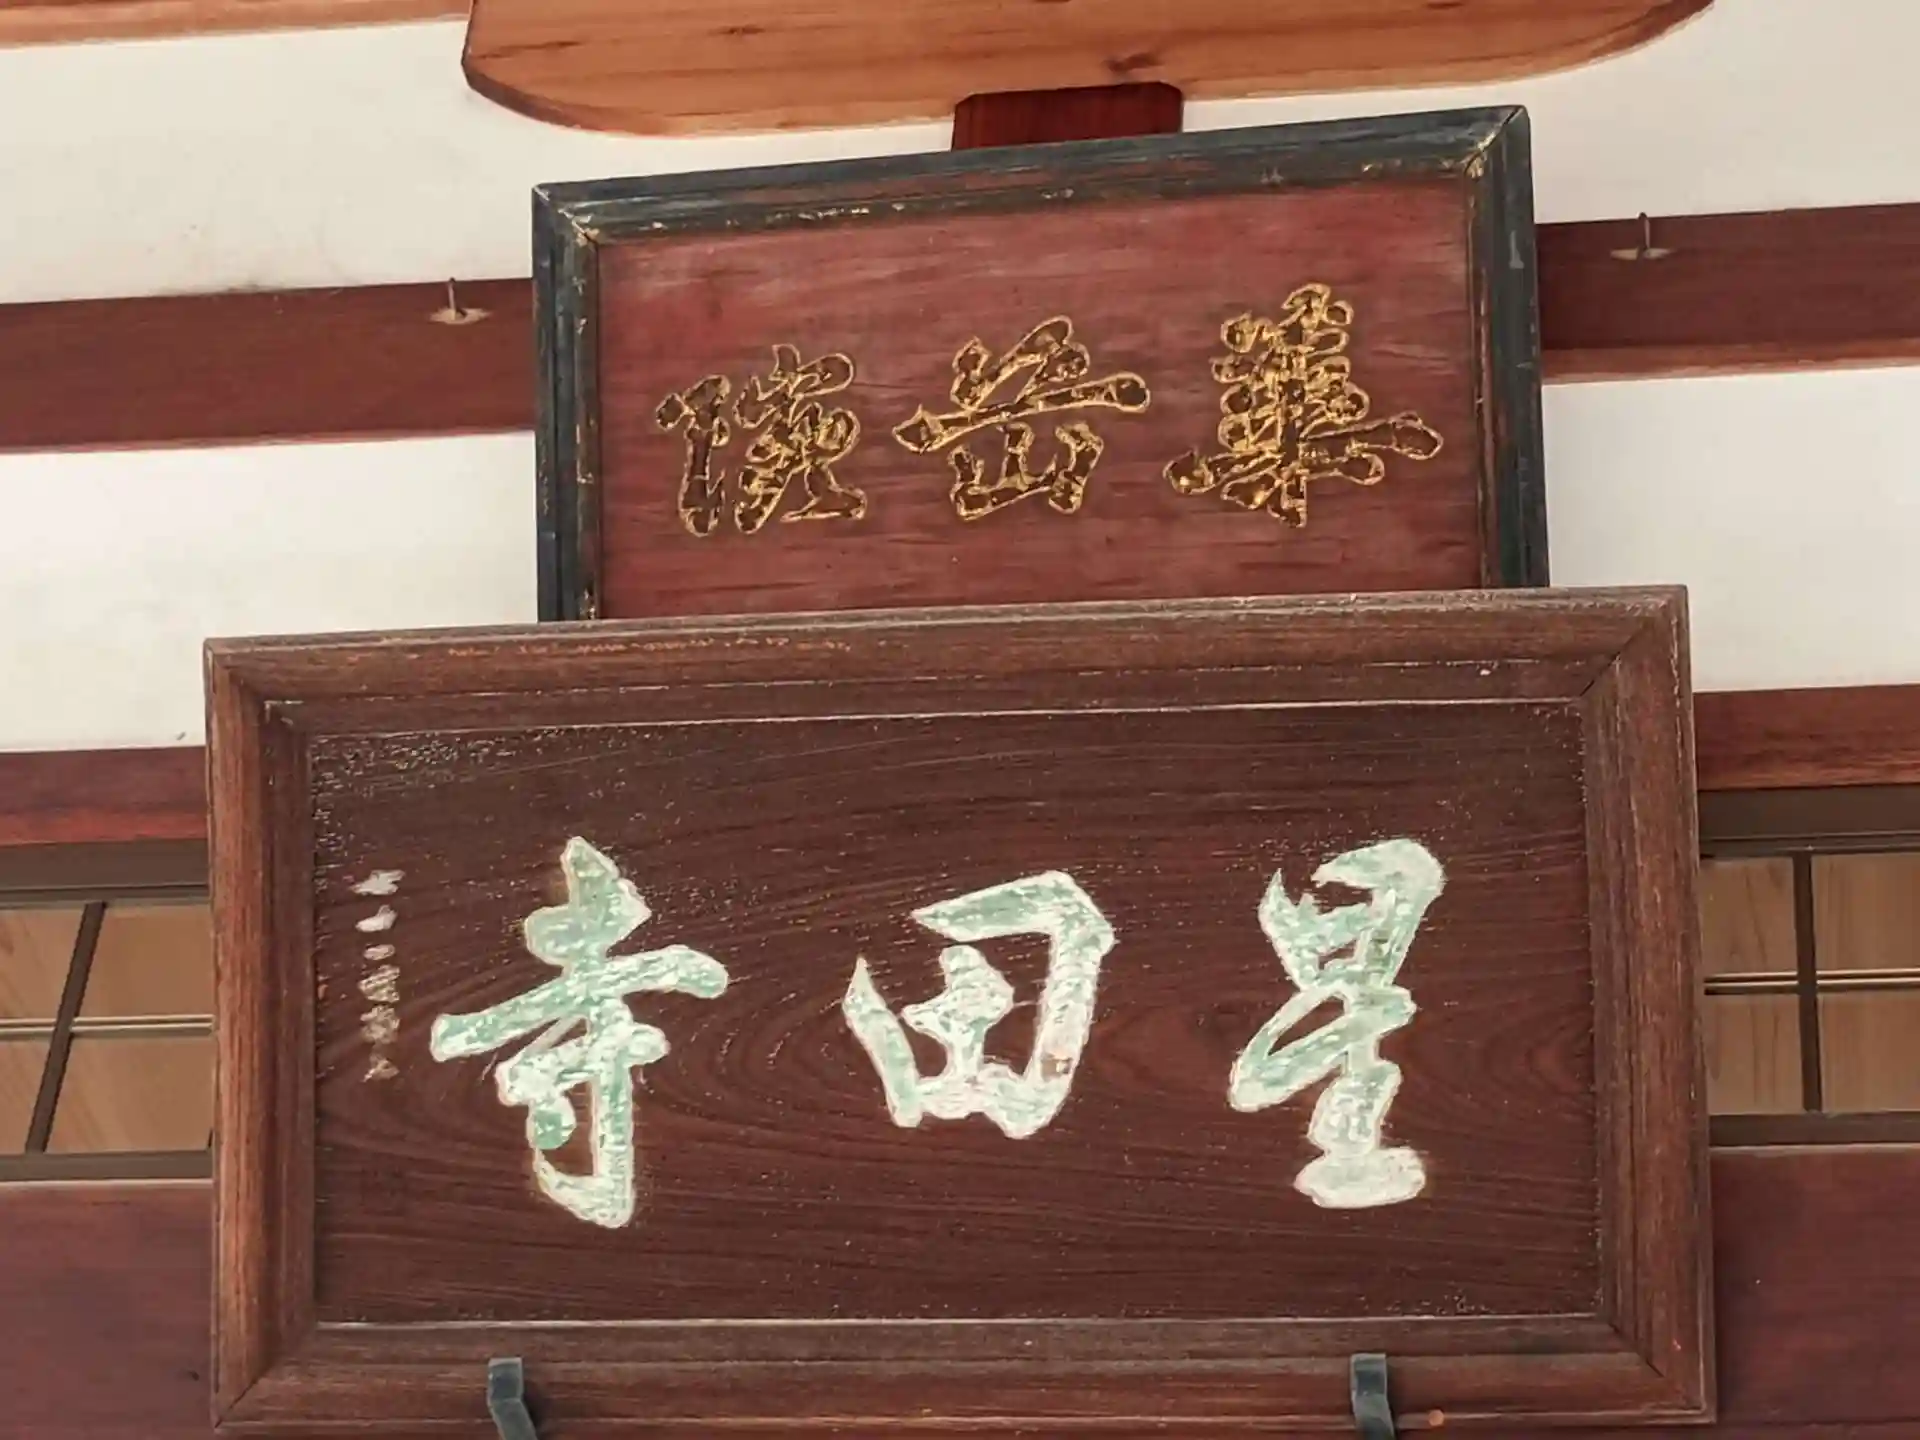 華岳院
星田寺